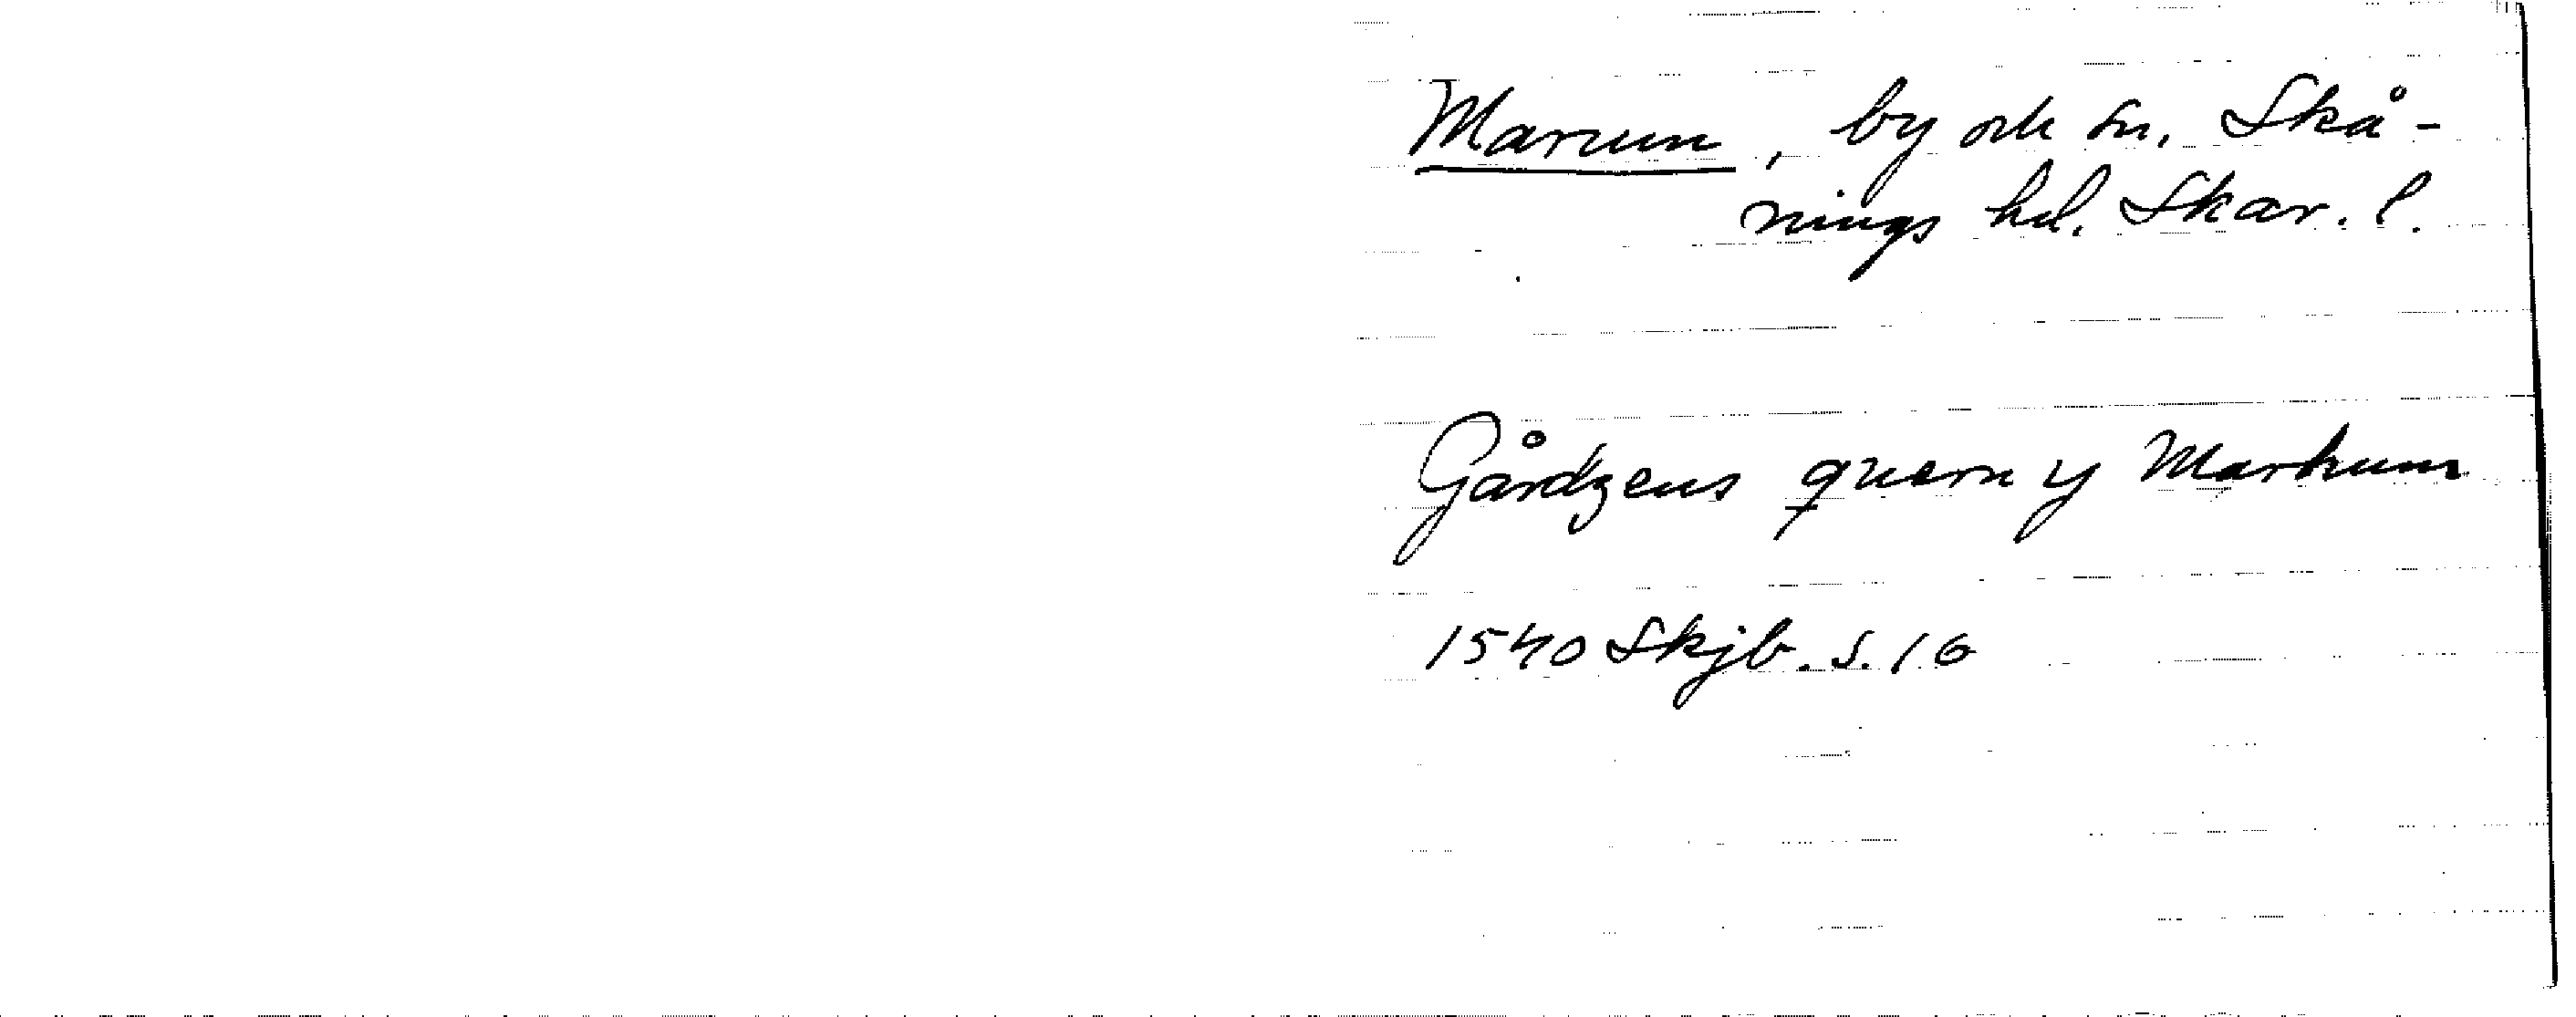 Marum, by och sn. Skå-
nings hd. Skar. l.
Gårdzens quern y Markum
1540 Skjb. S. 16